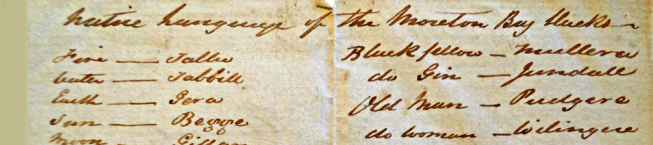 Native Language of the Moreton Bay Blacks
Fire — Tallu
Water — Tabbill
Earth — Jera
Sun — Begge
Moon — Gillan
Black fellow — Mullera
do Gin — Jundall
Old Man — Pudgere
do woman — Wilingere